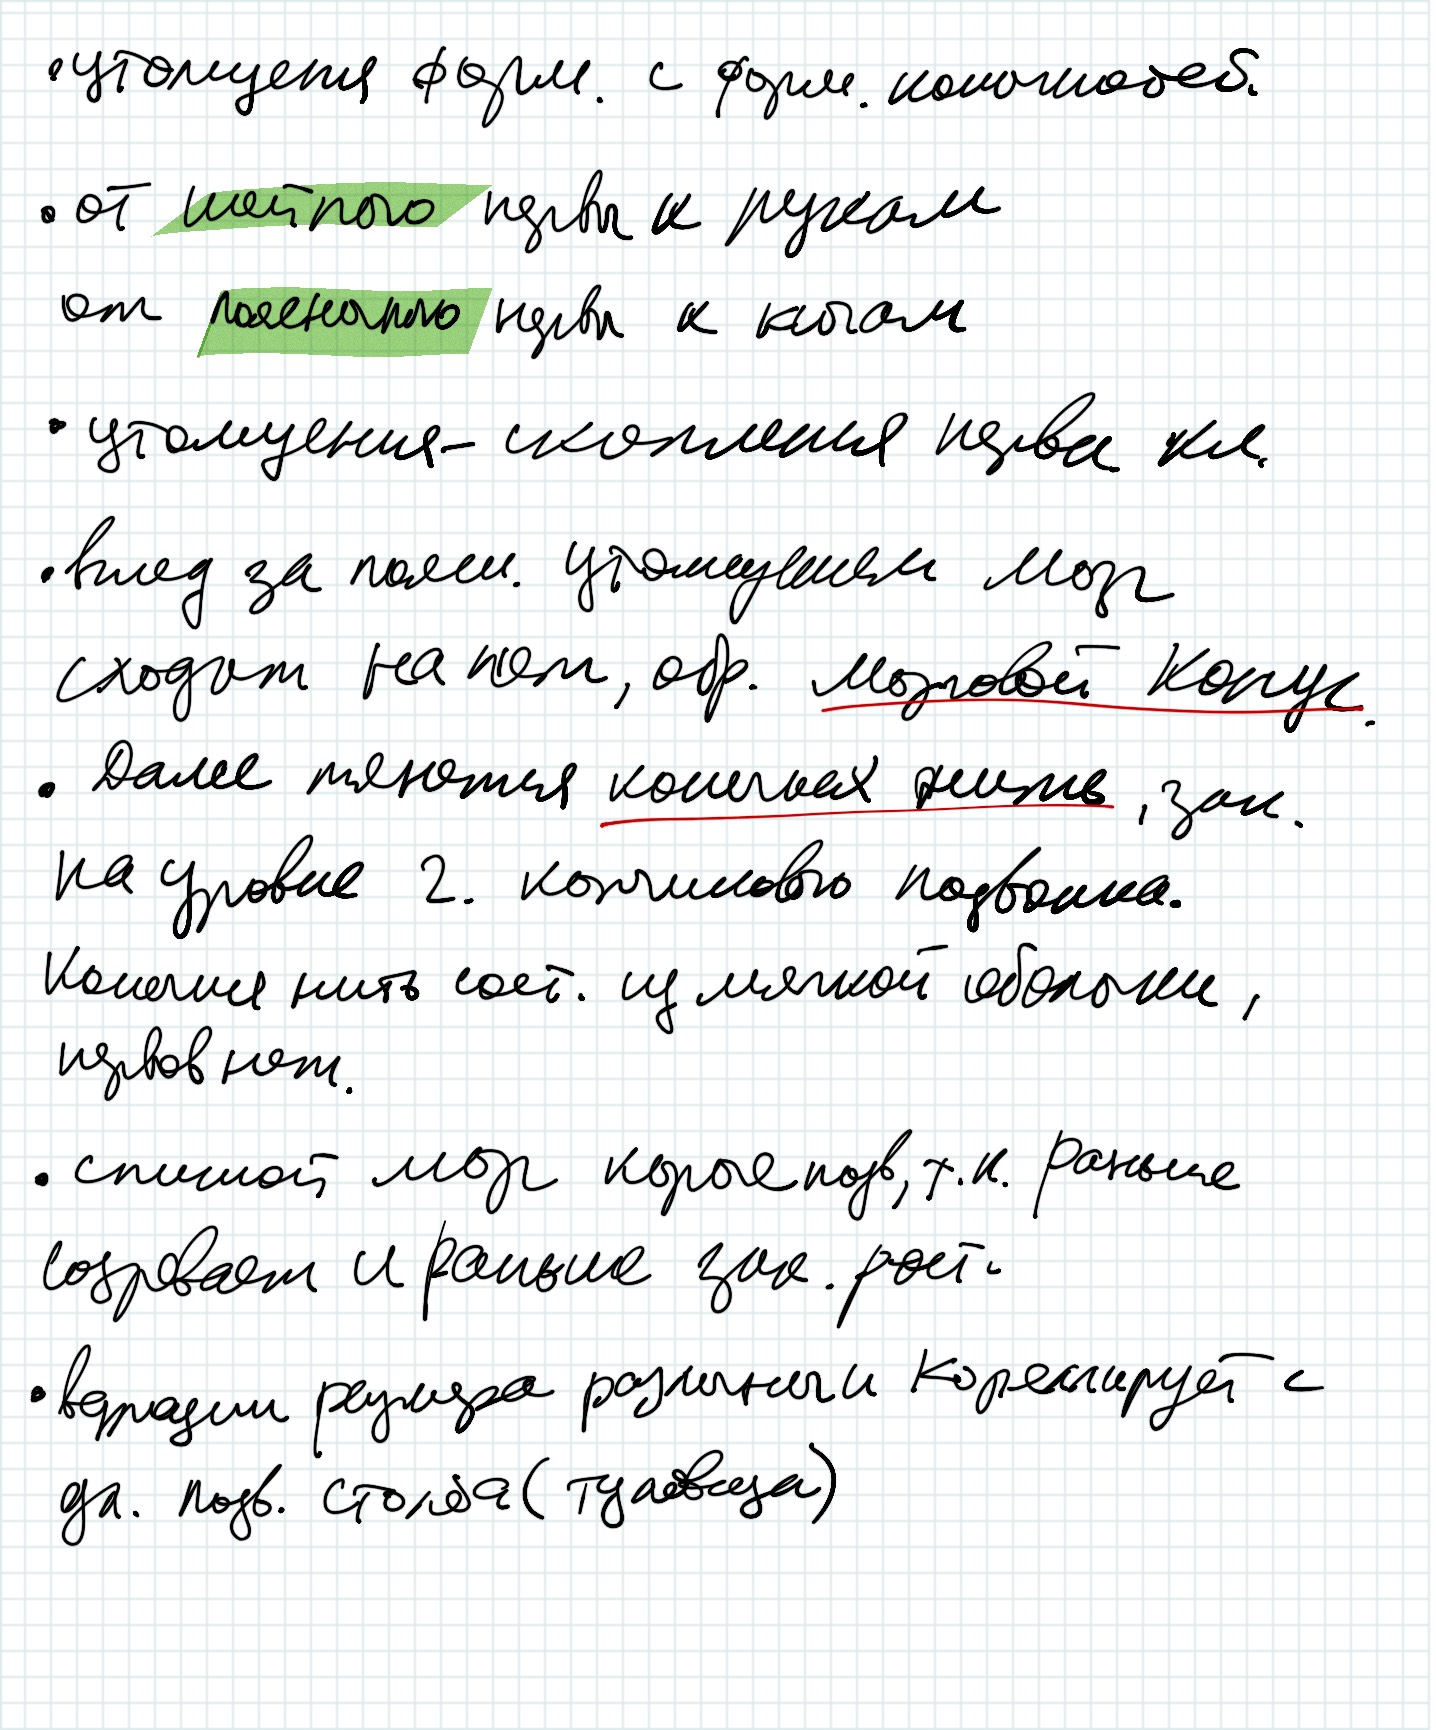 •утолщения форм. с форм. конечностей.
•от шейного нервы к рукам
от поясничного нервы к ногам
•утолщения – скопления нерва кл.
•вслед за поясн. утолщением мозг
сходит на нет, обр. Мозговой Конус.
• Далее тянется конечная нить, зак.
на уровне 2. копчикового позвонка.
Конечная нить сост. из мягкой оболочки,
нервов нет.
• спинной мозг короче позв, т.к. раньше
созревает и раньше зак. рост.
•вариации размера различны и Корелирует с
дл. позв. столба (туловища)